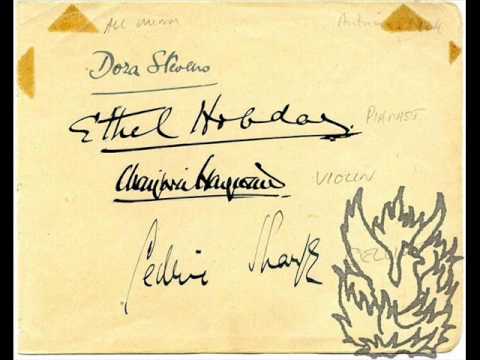 Dora Stevens
Ethel Hobday PIANIST
Marjorie Hayward VIOLIN
Cedric Sharpe CELLO